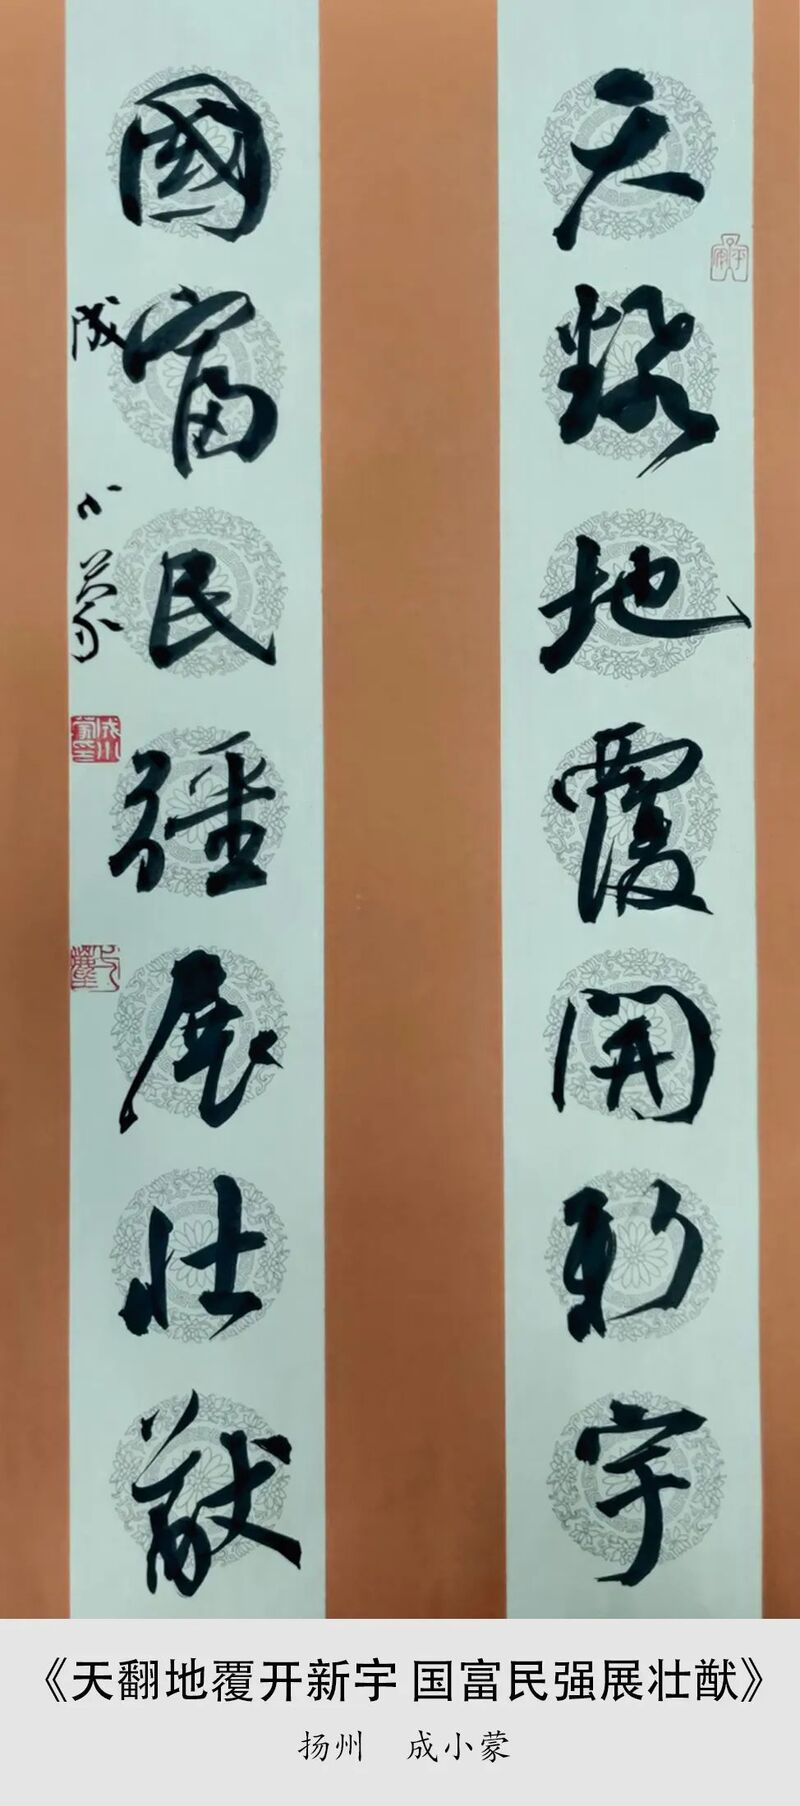 天翻地覆開新宇
國富民強展壯猷
成小蒙
《天翻地覆开新宇 国富民强展壮猷》
扬州 成小蒙